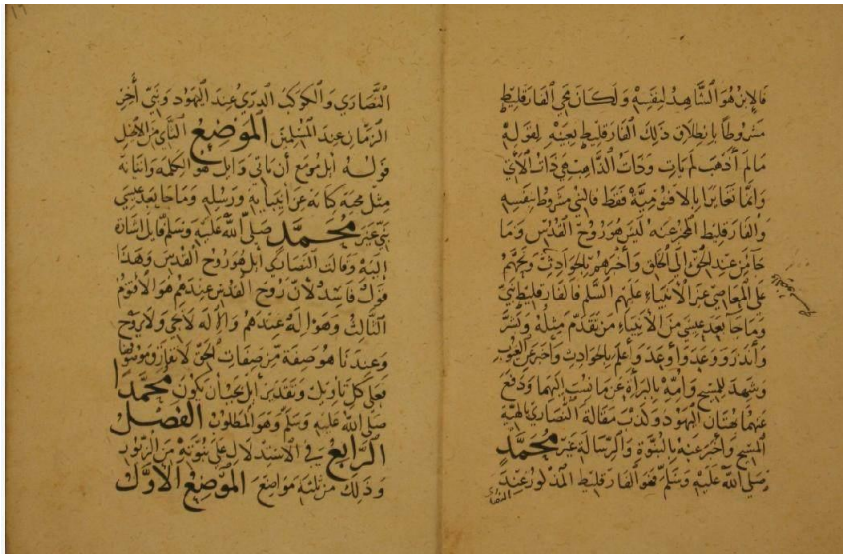 فالابن هو الشاهد لنفسه ولكان مجي الفارقليط
مشروطا بانطلاق ذلك الفارقليط بعينه لقوله
مالم أذهب لم يات وذات الذاهب هي ذات الآتي
وانما تغايرا بالاقنومية فقط فالنبي مشروط بنفسه
والفارقليط المخبر عنه ليس هو روح القدس وما
جا من عند الحق إلى الخلق وأخبرهم بالحوادث وبخهم
على المعاصي غير الأنبياء عليهم السلم فالفارقليط نبي
وما جا بعد عيسى من الأنبياء من تقدم مثله وبشر
وأنذر ووعد وأوعد وأعلم بالحوادث وأخبر عن الغيوب
وشهد للمسيح وامه بالبراة عن ما نسب اليهما ودفع
عنهما بهتان اليهود وكذب مقالة النصاري بالهية
المسيح واخبر عنه بالنبوة والرسالة غير محمد
صلى الله عليه وسلم فهو الفارقليط المذكور عند
النصاري والكوكب الدري عند اليهود ونبي أخر
الزمان عند المسلمين الموضع الثاني من الانجيل
قوله ابل مزمع أن ياتي وابل هو الله واتيانه
مثل مجية كناية عن انبيايه ورسله وما جا بعد عيسى
نبي غير محمد صلى الله عليه وسلم فابل اشارة
إليه وقالت النصاري أبل هو روح القدس وهذا
قول فاسد لان روح القدس عندهم هو الاقنوم
الثالث وهو اله عندهم والاله لا يجي ولا يروح
وعندنا هو صفة من صفات الحق لا تفارق موصوفها
فعلى كل تاويل وتقدير أبل يجب ان يكون محمدا
صلى الله عليه وسلم وهو المطلوب الفصل
الرابع في الاستدلال على نبوته من الزبور
وذلك من ثلثة مواضع الموضع الأول